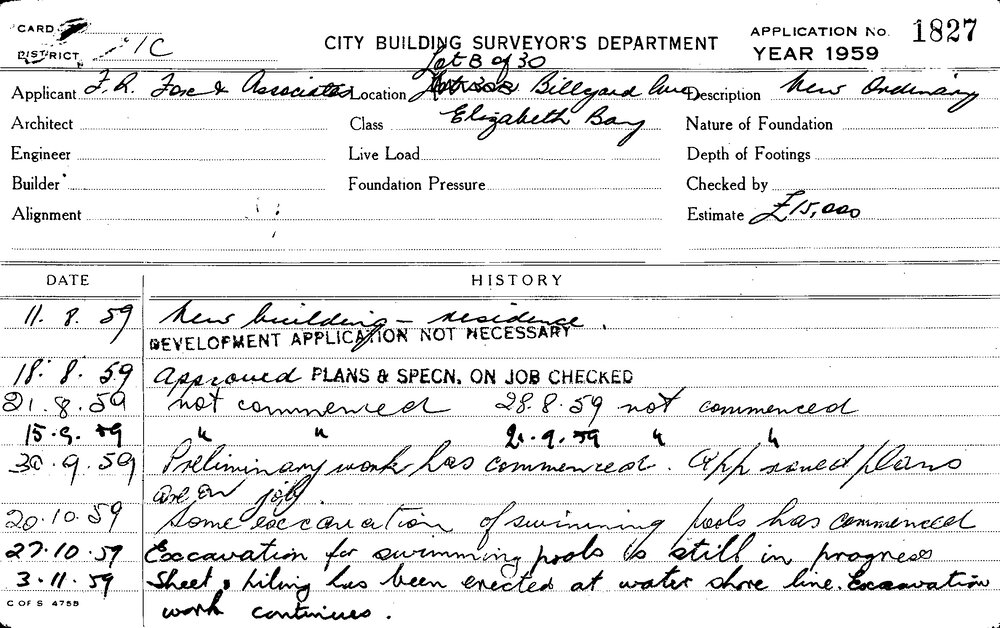 CARD
DISTRICT IC
CITY BUILDING SURVEYOR'S DEPARTMENT
APPLICATION No. 1827
YEAR 1959
Lot B of 30
Applicant F. R. Fox & Associates Location Billyard Ave Description New Ordinary
Architect Class Elizabeth Bay Nature of Foundation
Engineer Live Load Depth of Footings
Builder Foundation Pressure Checked by
Alignment Estimate £15,000
DATE HISTORY
11. 8. 59 New building – residence.
DEVELOPMENT APPLICATION NOT NECESSARY
18. 8. 59 Approved PLANS & SPECN. ON JOB CHECKED
21. 8. 59 not commenced 28. 8. 59 not commenced
15. 9. 59 " " 21. 9. 59 " "
30. 9. 59 Preliminary work has commenced. Approved plans
are on job
20. 10. 59 Some excavation of swimming pools has commenced
27. 10. 59 Excavation for swimming pools is still in progress
3. 11. 59 Sheet piling has been erected at water shore line. Excavation
work continues.
C OF S 4755